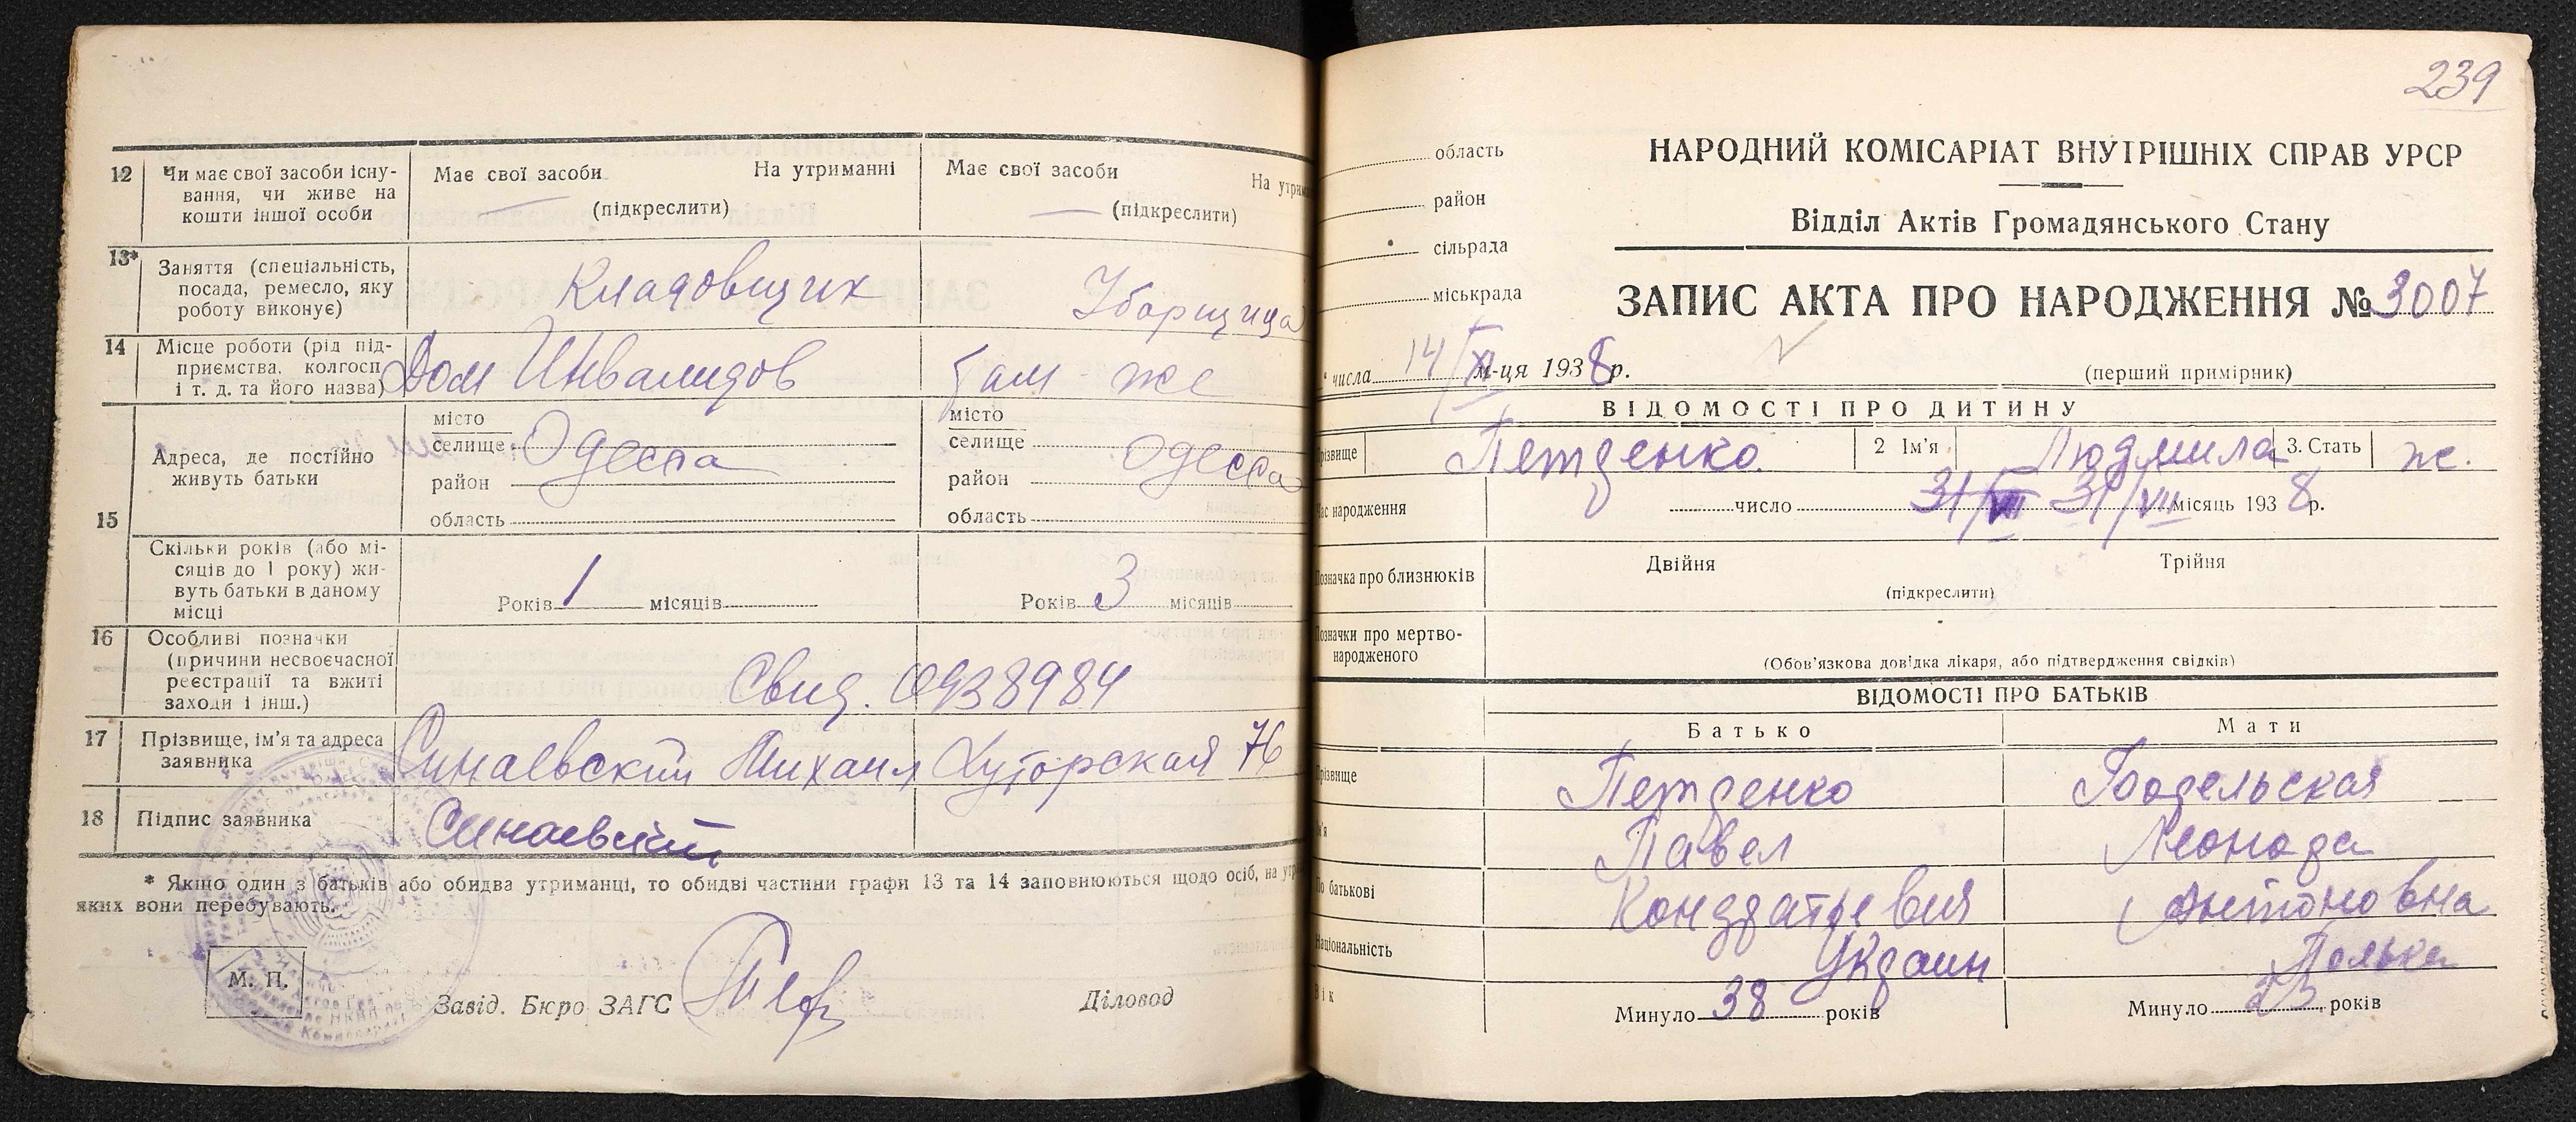 12 Чи має свої засоби існування, чи живе на кошти іншої особи
Має свої засоби На утриманні
(підкреслити)
Має свої засоби На утрим
(підкреслити)
13* Заняття (спеціальність, посада, ремесло, яку роботу виконує)
Кладовщик
Уборщица
14 Місце роботи (рід підприємства, колгосп і т. д. та його назва)
Дом Инвалидов
Там же
15 Адреса, де постійно живуть батьки
місто
селище Одесса
район
область
місто
селище Одесса
район
область
Скільки років (або місяців до 1 року) живуть батьки в даному місці
Років 1 місяців
Років 3 місяців
16 Особливі позначки (причини несвоєчасної реєстрації та вжиті заходи і інш.)
Свид. 0938984
17 Прізвище, ім'я та адреса заявника
Синаевский Михаил Хуторская 76
18 Підпис заявника
Синаевский
* Якщо один з батьків або обидва утриманці, то обидві частини графи 13 та 14 заповнюються щодо осіб, на
яких вони перебувають.
М. П.
Завід. Бюро ЗАГС
Діловод
239
область
район
сільрада
міськрада
НАРОДНИЙ КОМІСАРІАТ ВНУТРІШНІХ СПРАВ УРСР
Відділ Актів Громадянського Стану
ЗАПИС АКТА ПРО НАРОДЖЕННЯ № 3007
числа 14/XI м-ця 1938 р.
(перший примірник)
ВІДОМОСТІ ПРО ДИТИНУ
різвище Петренко 2 Ім'я Людмила 3. Стать ж.
ас народження число 31/VIII 31/VII місяць 1938 р.
означка про близнюків Двійня Трійня
(підкреслити)
означки про мертвонародженого
(Обов'язкова довідка лікаря, або підтвердження свідків)
ВІДОМОСТІ ПРО БАТЬКІВ
Батько Мати
різвище Петренко
м'я Павел
о батькові Кондратьевич Антоновна
аціональність Украин Полька
Вік Минуло 38 років Минуло 23 років